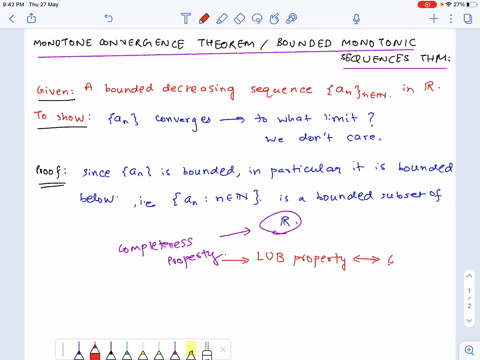 9:42 PM Thu 27 May
27%
MONOTONE CONVERGENCE THEOREM / BOUNDED MONOTONIC
SEQUENCES THM:
Given: A bounded decreasing sequence {an}n∈N in R.
To show: {an} converges → to what limit?
We don't care.
Proof: since {an} is bounded, in particular it is bounded
below, i.e {an : n∈N} is a bounded subset of
R.
Completeness
Property. → LUB property ↔ G
1
/
2